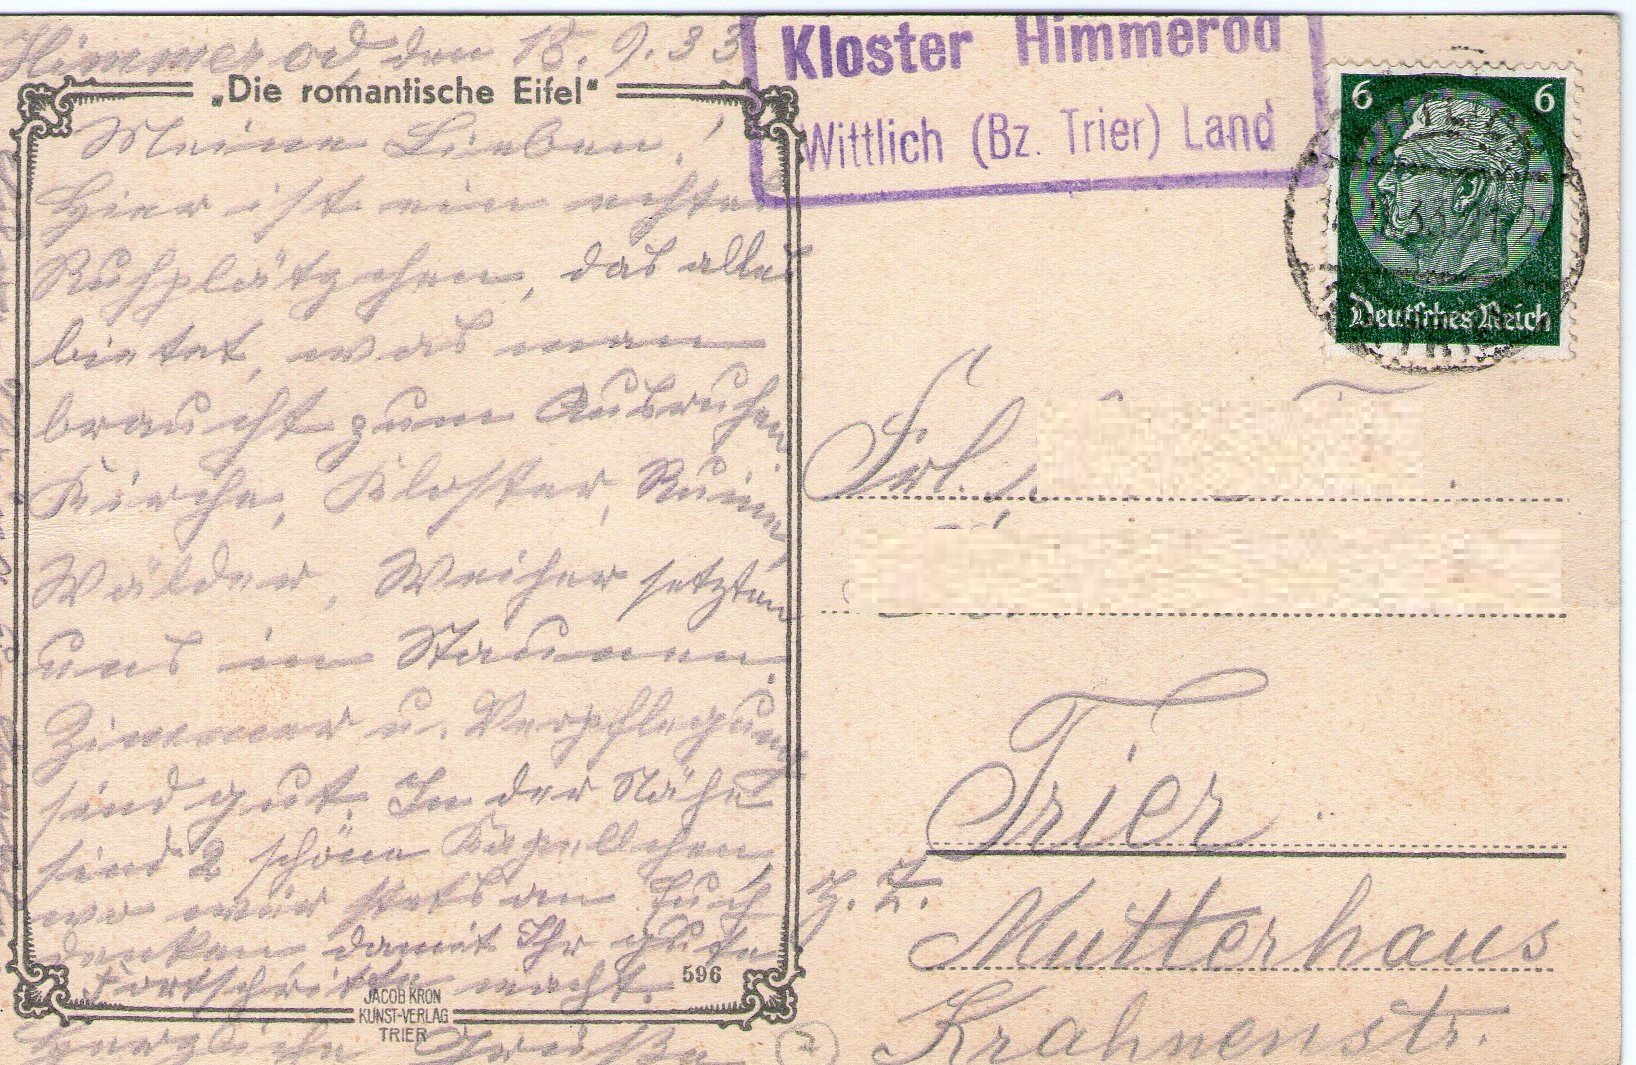 Himmerod den 18. 9. 33
„Die romantische Eifel"
Meine Lieben!
Hier ist ein echtes
Ruhplätzchen, das alles
bietet, was man
braucht zum Ausruhen
Kirche, Kloster, Ruine,
Wälder, Weiher setzten
uns in Staunen.
Zimmer u. Verpflegung
sind gut. In der Nähe
sind 2 schöne Kapellchen,
wo wir stets an Euch
denken damit Ihr gute
Fortschritte macht.
596
JACOB KRON
KUNST-VERLAG
TRIER
Herzliche Grüße
Kloster Himmerod
Wittlich (Bz. Trier) Land
6 6
Deutsches Reich
Frl.
Trier
z. Z.
Mutterhaus
Krahnenstr.
7